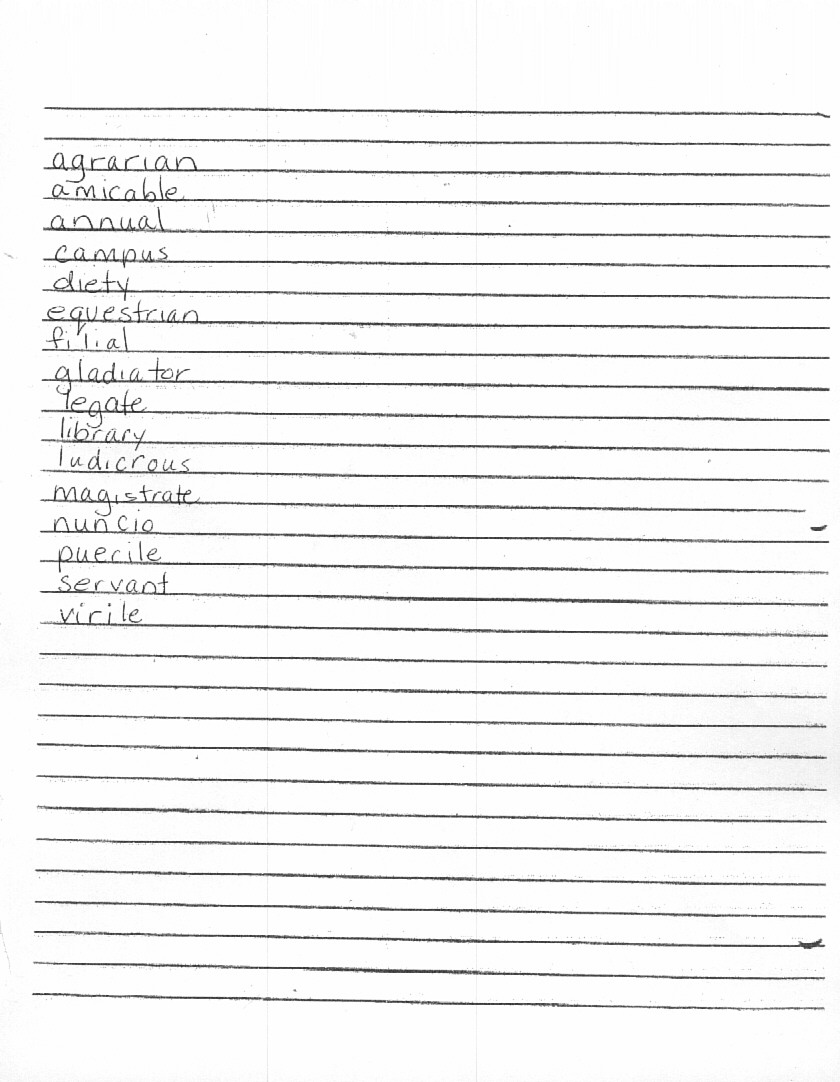 agrarian
amicable
annual
campus
diety
equestrian
filial
gladiator
legate
library
ludicrous
magistrate
nuncio
puerile
servant
virile